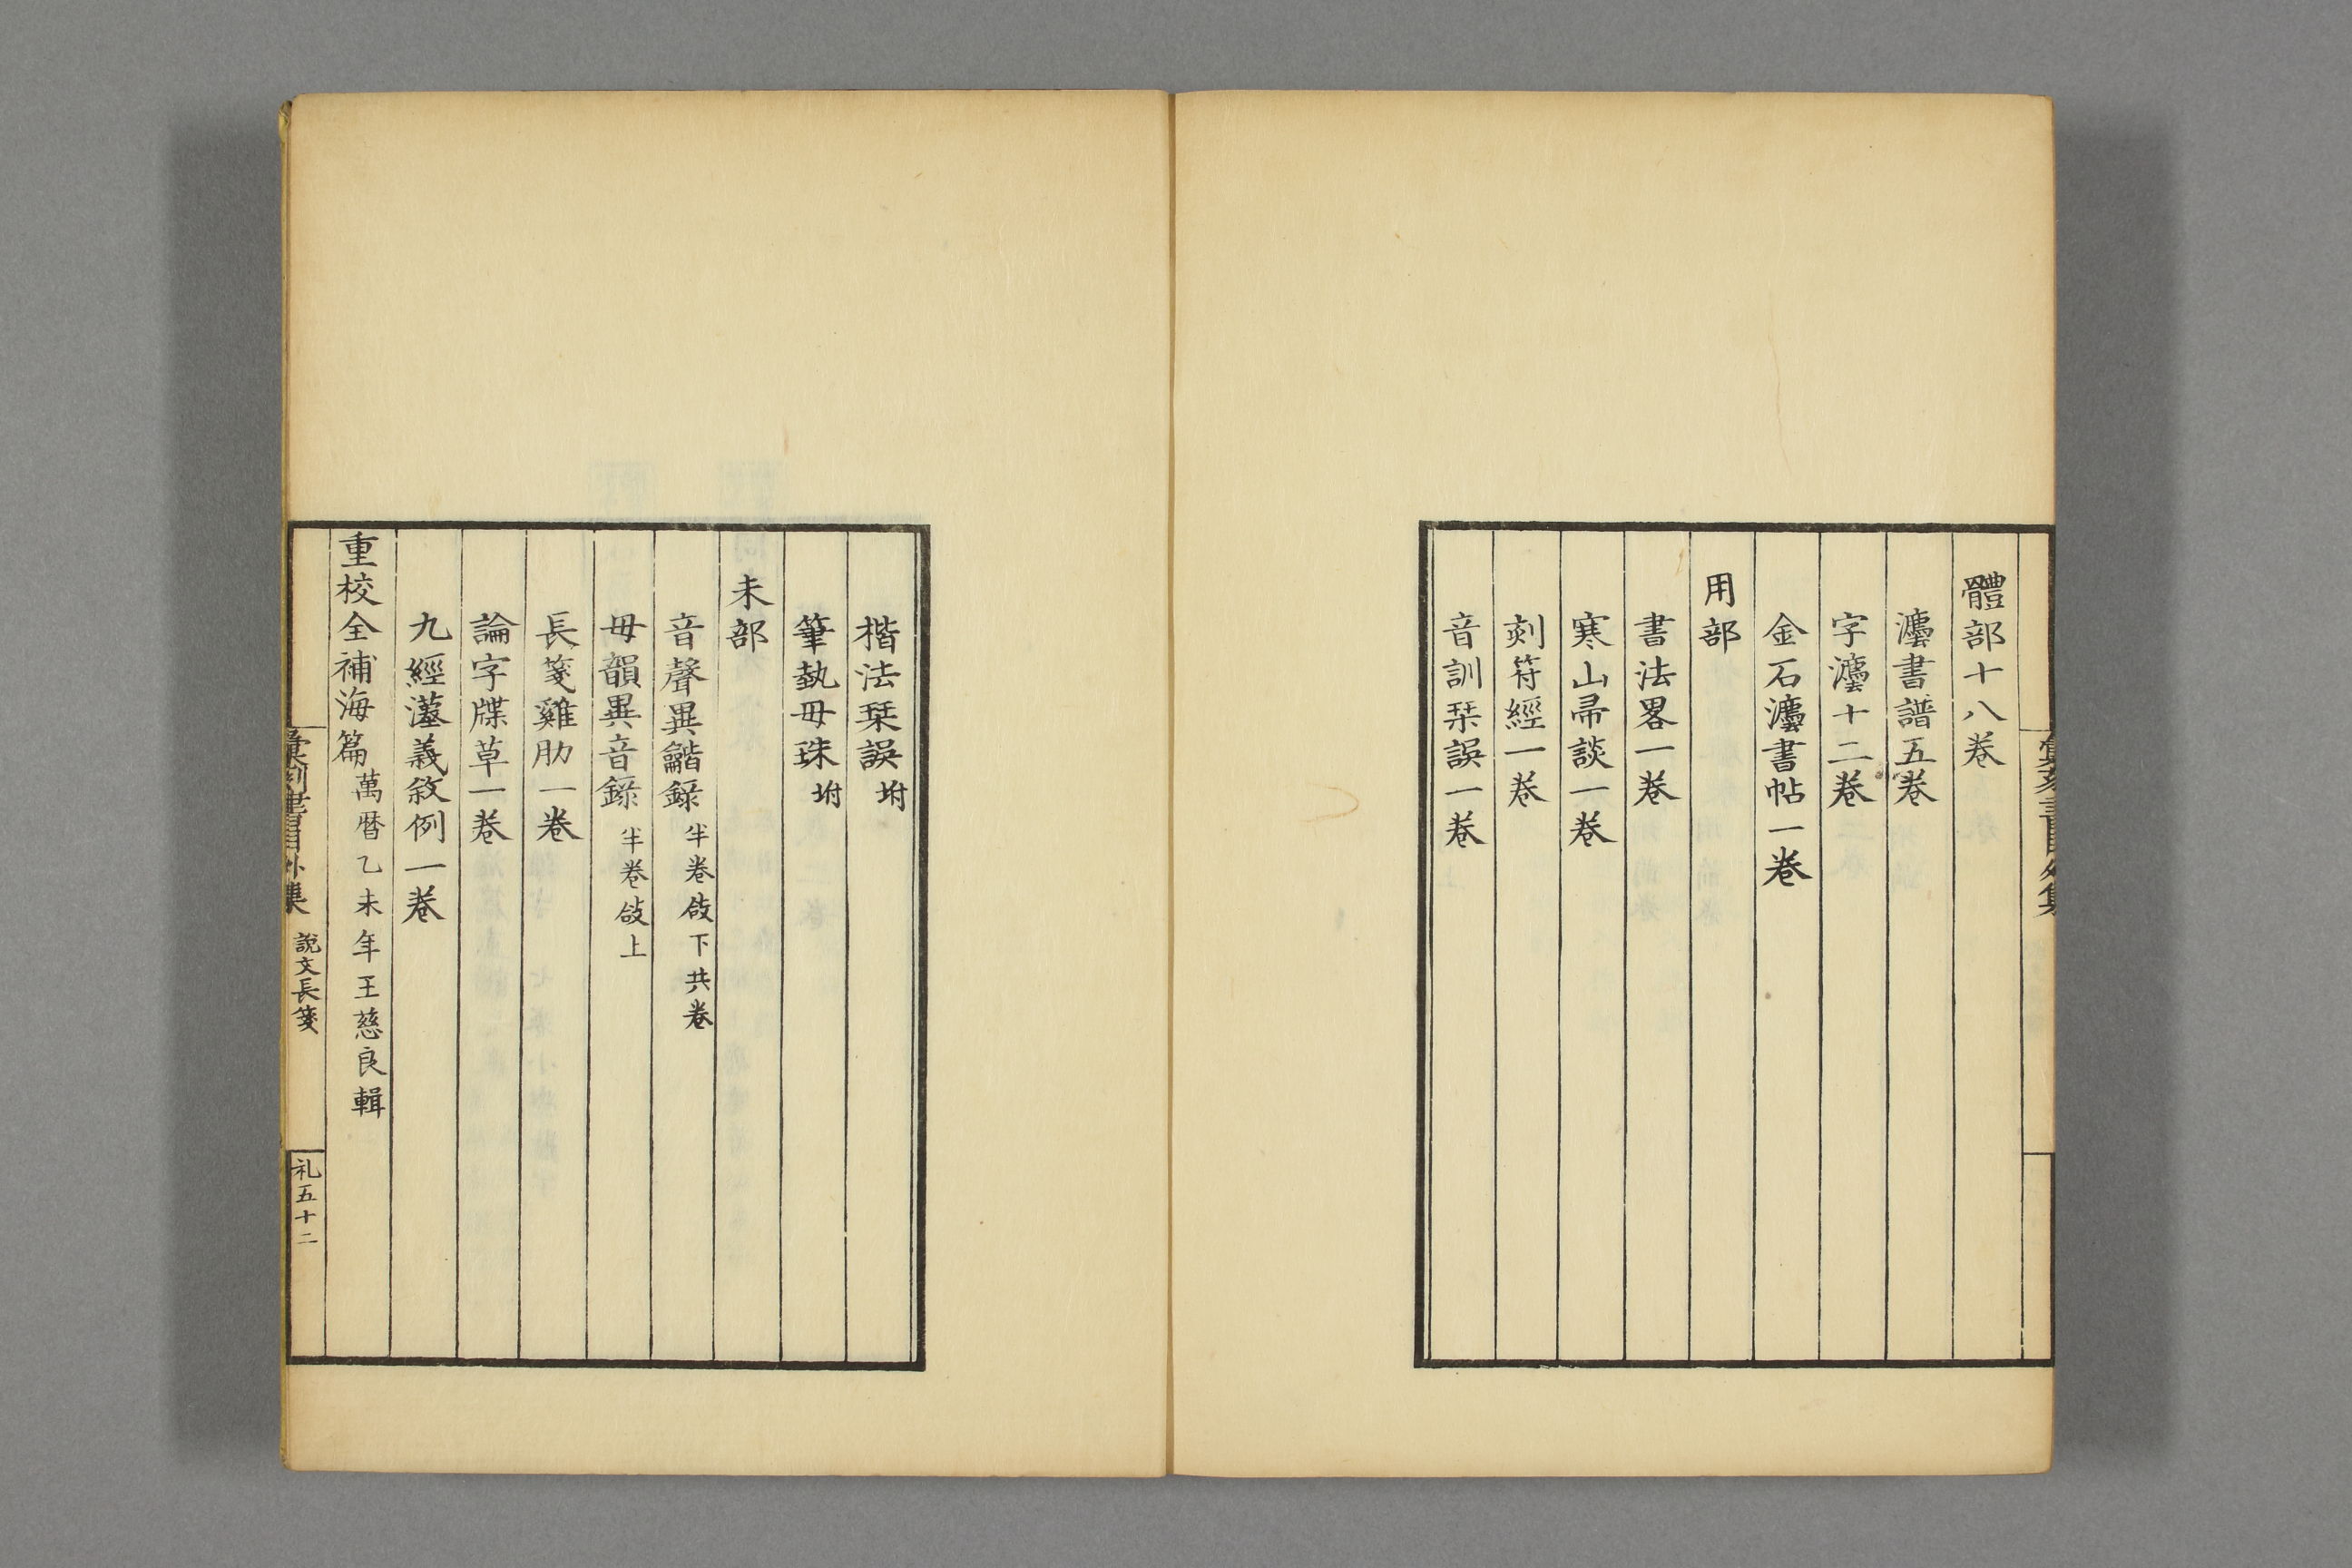 體部十八卷
灋書譜五卷
字灋十二卷
金石灋書帖一卷
用部
書法畧一卷
寒山帚談一卷
刻符經一卷
音訓栞誤一卷
楷法栞誤坿
筆埶毋珠坿
未部
音聲異龤錄半卷敆下共卷
毋韻異音錄半卷敆上
長箋雞肋一卷
論字牒草一卷
九經灋義敘例一卷
重校全補海篇萬曆乙未年王慈良輯
彙刻書目外集 說文長箋 礼五十二